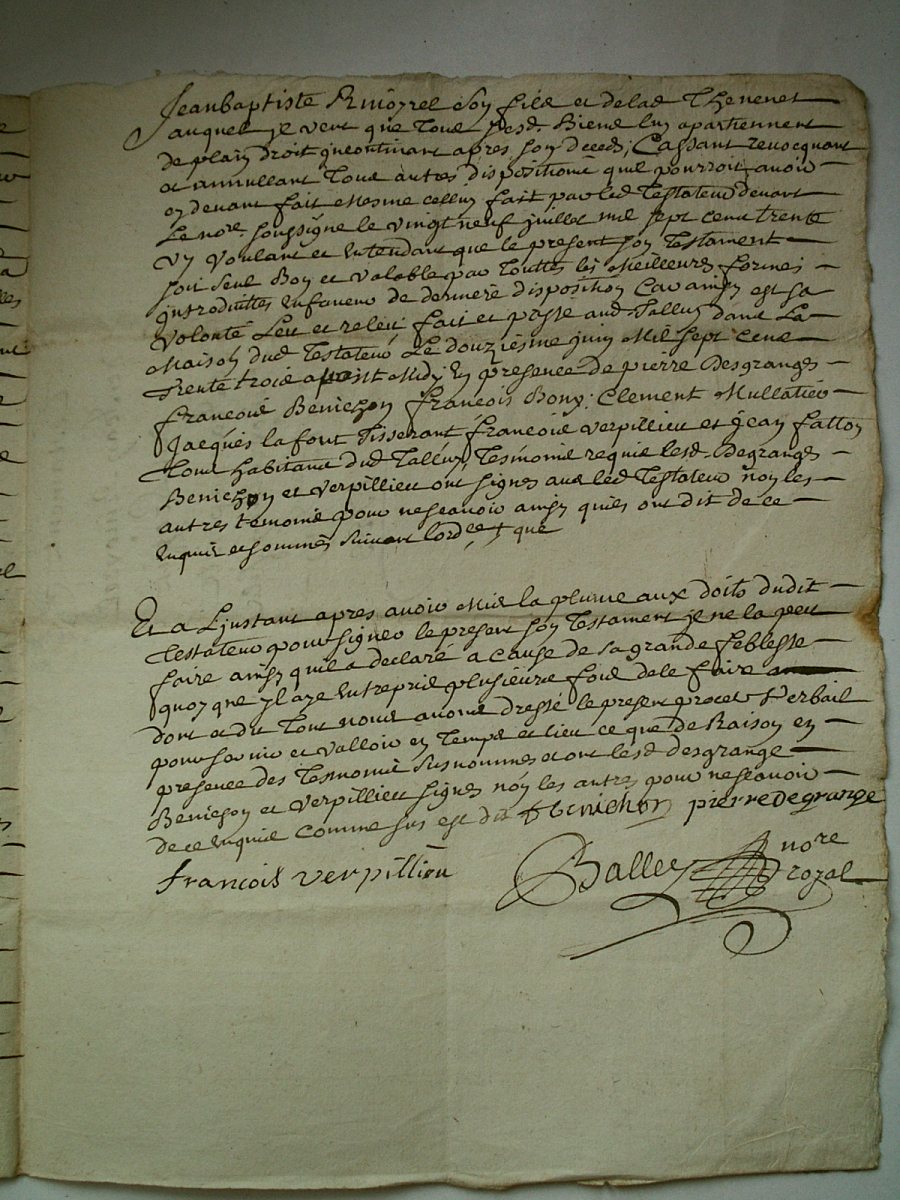 Jeanbaptiste Rivoyrel son fils et delad Thevenet
auquel je veut que tous sesd. Biens luy apartiennent
de plain droit jncontinant apres son deces; Cassant revocquant
et annullant tous autres dispositions quil pourroit avoir
cy devant fait Mesme celluy fait par led Testateur devant
Le nore. soussigne le vingt neuf juillet mil sept cent trente
un Voulant et Entendant que le present son Testament
soit seul Bon et valable par touttes les Meilleures formes
jntroduittes en faveur de derniere disposition Car ainsy est sa
volonté Leu et releu, fait et passé aud Tallux dans La
Maison dud Testateur Le douziesme juin Mil sept cent
trente trois Midy En presence de pierre Desgranges
francois Benichon francois Bony: Clement Mullatier
Jacques lafont Tisserant francois verpillieu et jean fatton
tous habitants dud Tallux, Tesmoins requis lesd. Degranges
Benichon et verpillieu ont signes avec led Testateur non les
autres temoins pour ne scavoir ainsy quils ont dit de ce
Enquis et sommés suivant lordce que
Et a Ljnstant apres avoir Mis la plume aux doits dudit
testateur pour signer le present son Testament jl ne la peut
faire ainsy quil a declaré a cause de sa grande feblesse
quoy que yl aye Entrepris plusieurs fois de le faire
dont et du tout nous avons dressé le present procet Verbail
pour servir et valloir en Temps et lieu ce que de Raison en
presence des Tesmoins susnommes et ont lesd desgrange
Benichon et verpillieu signes non les autres pour ne scavoir
de ce Enquis comme sus est dit Benichon pierre Degrange
francois verpilliou Balley nore
royal